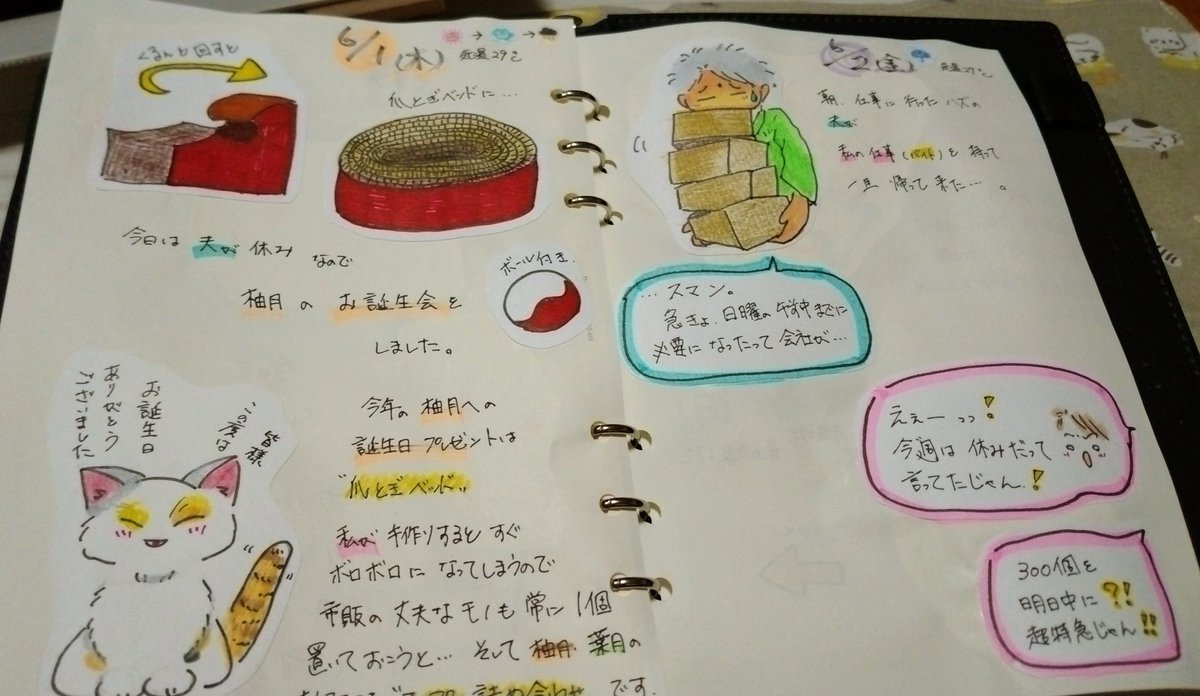 6/1(木)
気温29℃
くるんと回すと
爪とぎベッドに…
今日は 夫が 休み なので
ボール付き.
柚月 の お誕生会 を
しました。
皆様
この度は
お誕生日
ありがとう
ございました
今年の 柚月への
誕生日 プレゼントは
"爪とぎベッド"
私が 手作りすると すぐ
ボロボロに なってしまうので
市販の 丈夫な モノも 常に 1個
置いておこうと… そして 柚月, 葉月の
詰め合わせ です.
6/2(金)
気温27℃
朝. 仕事に 行った ハズの
夫が
私の仕事(バイト)を 持って
一旦 帰って 来た…。
…スマン。
急きょ. 日曜の午前中までに
必要に なったって 会社が…
えぇーっっ!
今週は 休みだって
言ってたじゃん.!
300個を
明日中に?!
超特急じゃん!!